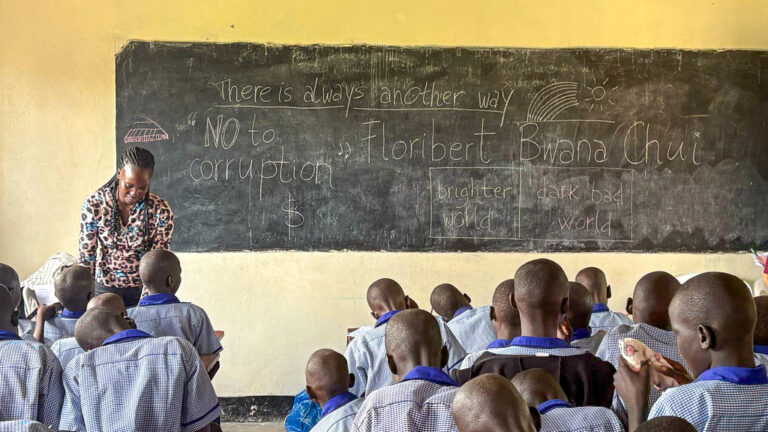 There is always another way
"NO to
corruption"
$
Floribert Bwana Chui
brighter
world
dark bad
world